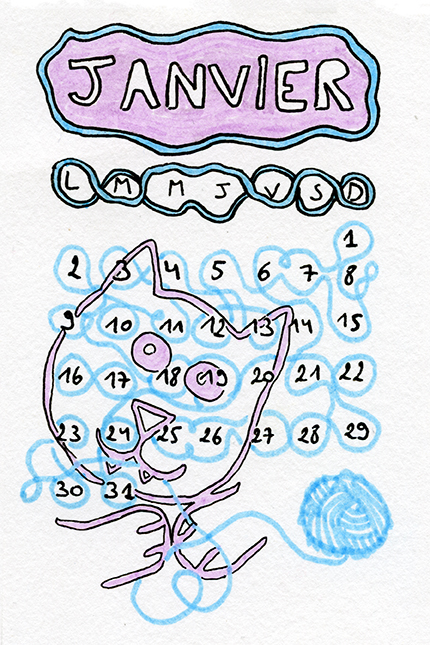 JANVIER
L M M J V S D
1
2 3 4 5 6 7 8
9 10 11 12 13 14 15
16 17 18 19 20 21 22
23 24 25 26 27 28 29
30 31